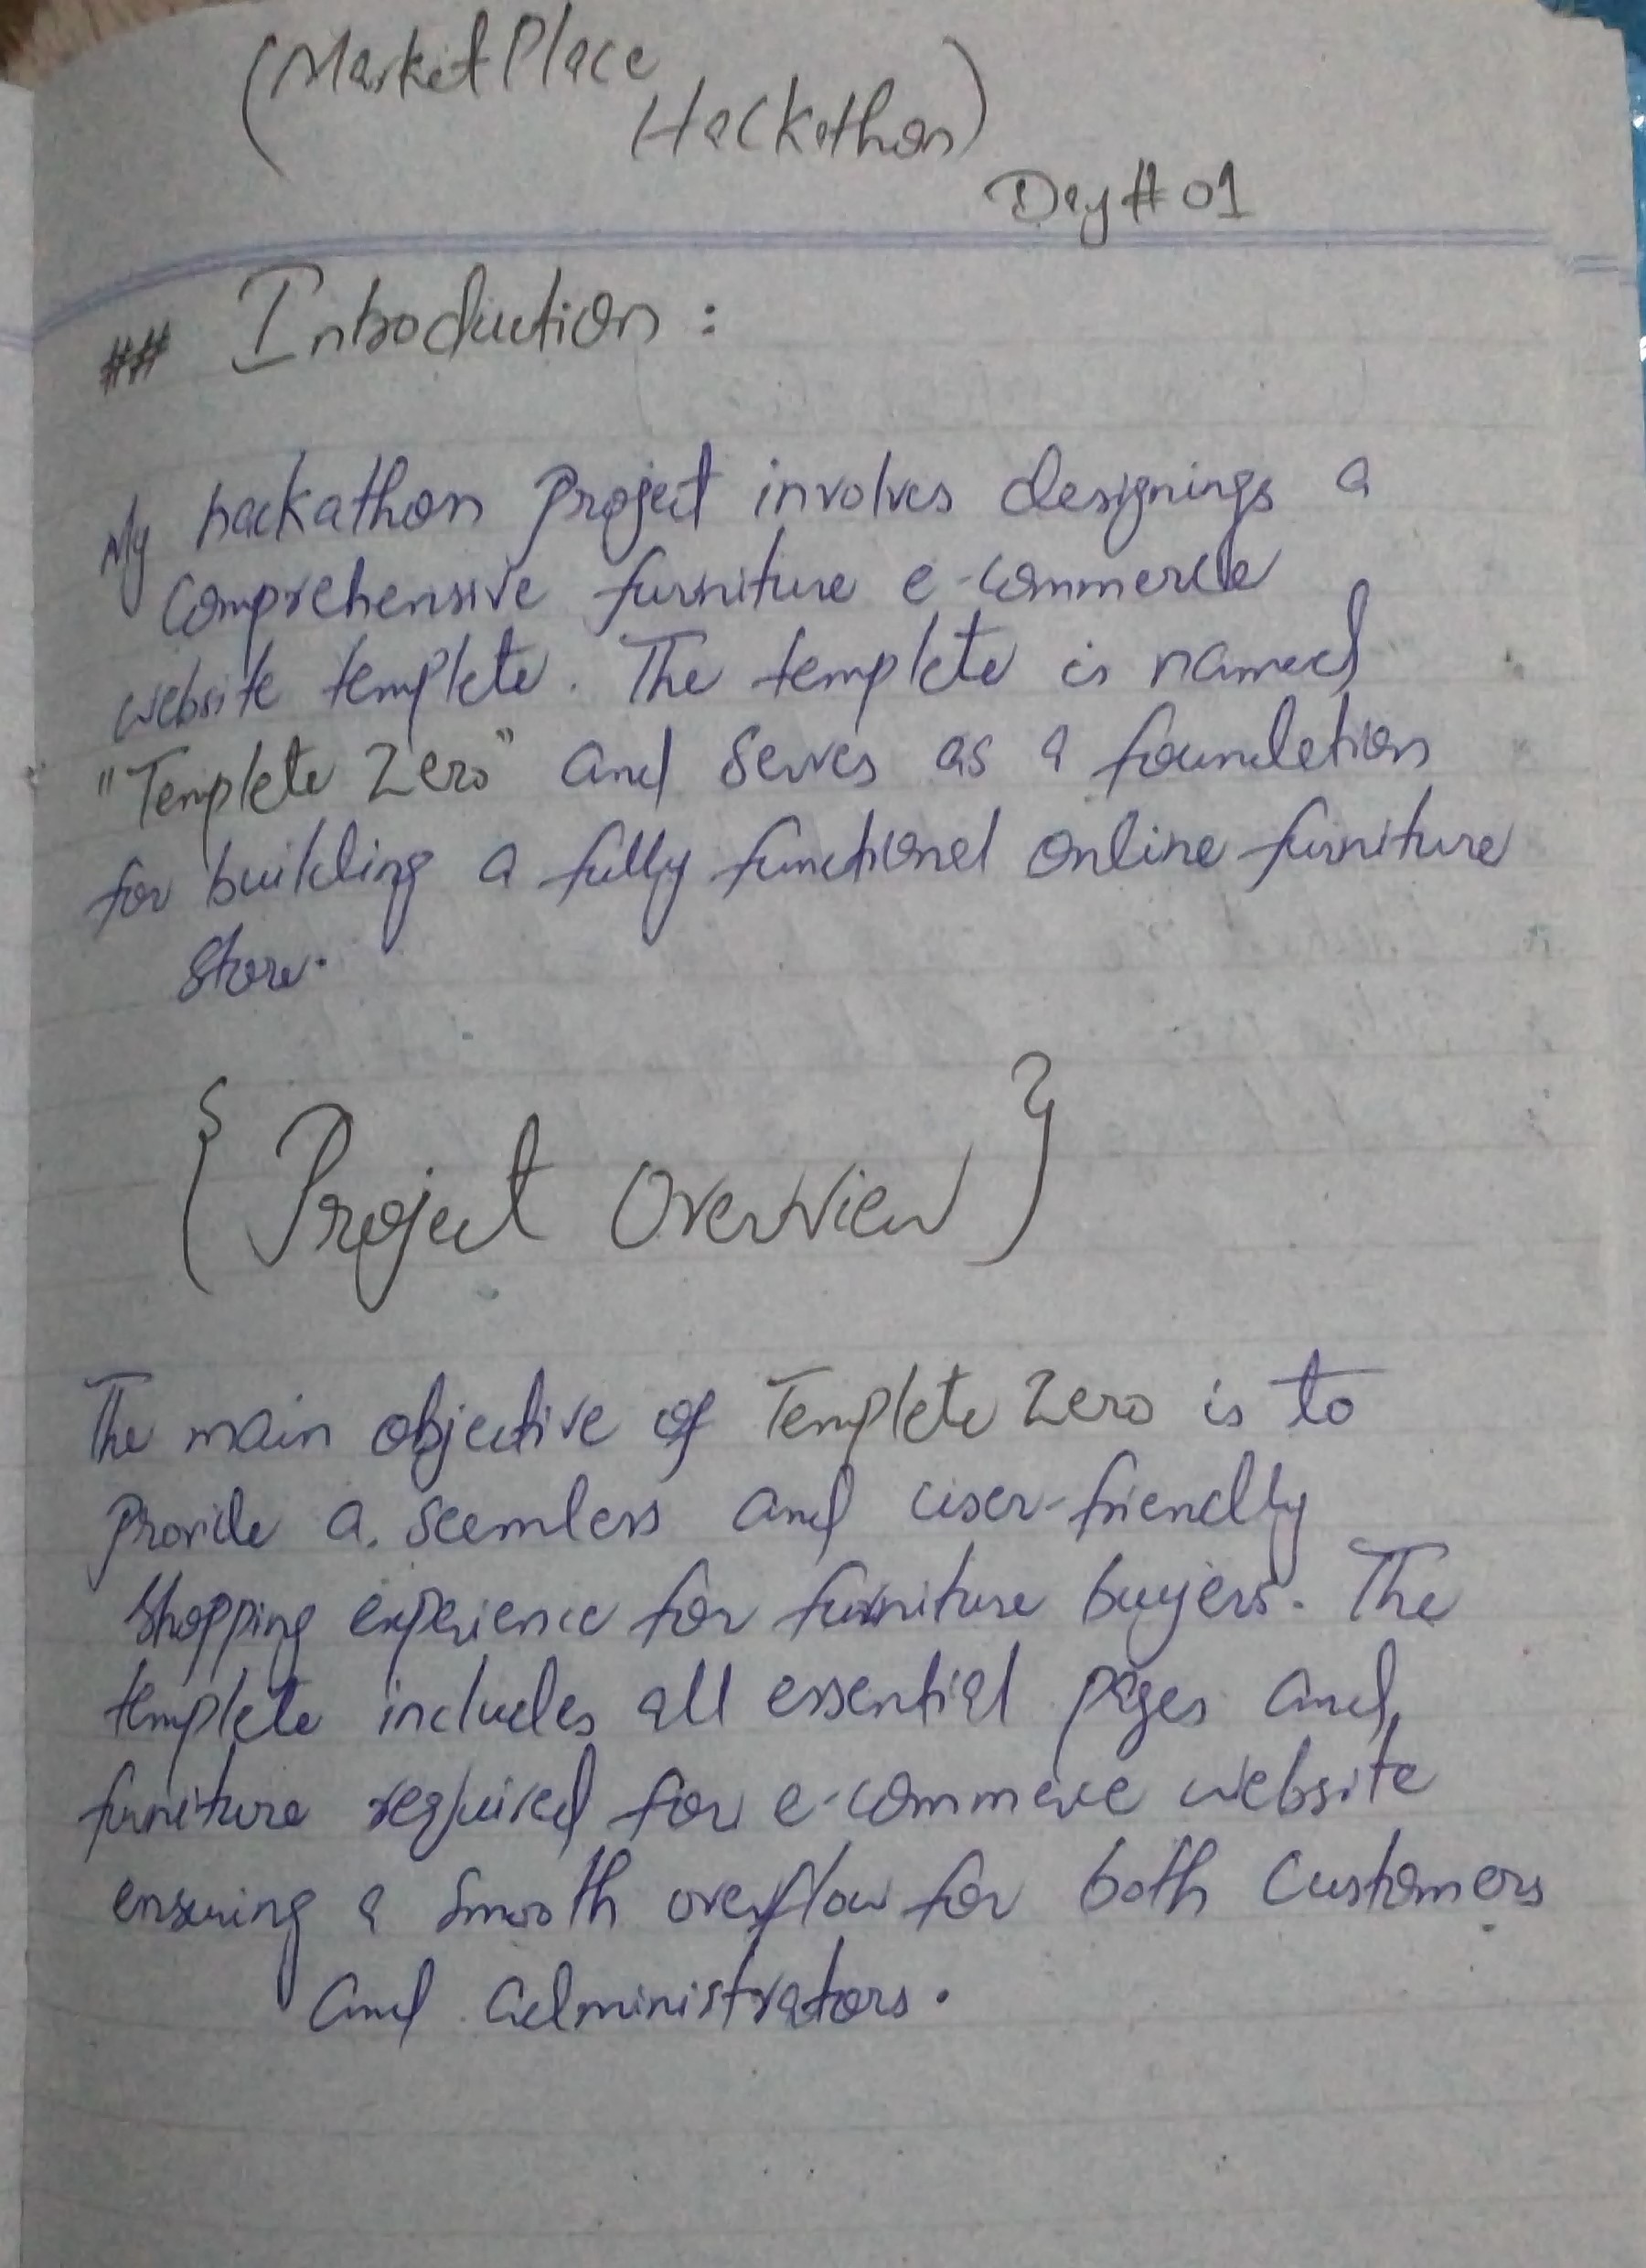 (MarketPlace
Hackathon)
Day # 01
## Introduction :
My hackathon project involves designings a
comprehensive furniture e-commerce
website templete. The templete is named
"Templete Zero" and serves as a foundation
for building a fully functional online furniture
store.
{ Project Overview }
The main objective of Templete Zero is to
provide a seemless and user-friendly
shopping experience for furniture buyers. The
templete includes all essential pages and
furniture required for e-commerce website
ensuring a smooth overflow for both customers
and administrators.